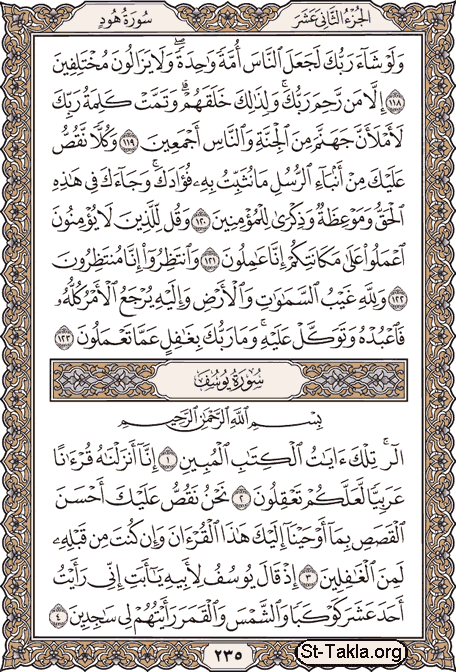 الجزء الثاني عشر
سورة هود
وَلَوْ شَآءَ رَبُّكَ لَجَعَلَ ٱلنَّاسَ أُمَّةً وَٰحِدَةً ۖ وَلَا يَزَالُونَ مُخْتَلِفِينَ
١١٨ إِلَّا مَن رَّحِمَ رَبُّكَ ۚ وَلِذَٰلِكَ خَلَقَهُمْ ۗ وَتَمَّتْ كَلِمَةُ رَبِّكَ
لَأَمْلَأَنَّ جَهَنَّمَ مِنَ ٱلْجِنَّةِ وَٱلنَّاسِ أَجْمَعِينَ ١١٩ وَكُلًّا نَّقُصُّ
عَلَيْكَ مِنْ أَنۢبَآءِ ٱلرُّسُلِ مَا نُثَبِّتُ بِهِۦ فُؤَادَكَ ۚ وَجَآءَكَ فِى هَٰذِهِ
ٱلْحَقُّ وَمَوْعِظَةٌ وَذِكْرَىٰ لِلْمُؤْمِنِينَ ١٢٠ وَقُل لِّلَّذِينَ لَا يُؤْمِنُونَ
ٱعْمَلُوا۟ عَلَىٰ مَكَانَتِكُمْ إِنَّا عَٰمِلُونَ ١٢١ وَٱنتَظِرُوٓا۟ إِنَّا مُنتَظِرُونَ
١٢٢ وَلِلَّهِ غَيْبُ ٱلسَّمَٰوَٰتِ وَٱلْأَرْضِ وَإِلَيْهِ يُرْجَعُ ٱلْأَمْرُ كُلُّهُۥ
فَٱعْبُدْهُ وَتَوَكَّلْ عَلَيْهِ ۚ وَمَا رَبُّكَ بِغَٰفِلٍ عَمَّا تَعْمَلُونَ ١٢٣
سورة يوسف
بِسْمِ ٱللَّهِ ٱلرَّحْمَٰنِ ٱلرَّحِيمِ
الٓر ۚ تِلْكَ ءَايَٰتُ ٱلْكِتَٰبِ ٱلْمُبِينِ ١ إِنَّآ أَنزَلْنَٰهُ قُرْءَٰنًا
عَرَبِيًّا لَّعَلَّكُمْ تَعْقِلُونَ ٢ نَحْنُ نَقُصُّ عَلَيْكَ أَحْسَنَ
ٱلْقَصَصِ بِمَآ أَوْحَيْنَآ إِلَيْكَ هَٰذَا ٱلْقُرْءَانَ وَإِن كُنتَ مِن قَبْلِهِۦ
لَمِنَ ٱلْغَٰفِلِينَ ٣ إِذْ قَالَ يُوسُفُ لِأَبِيهِ يَٰٓأَبَتِ إِنِّى رَأَيْتُ
أَحَدَ عَشَرَ كَوْكَبًا وَٱلشَّمْسَ وَٱلْقَمَرَ رَأَيْتُهُمْ لِى سَٰجِدِينَ ٤
٢٣٥
St-Takla.org